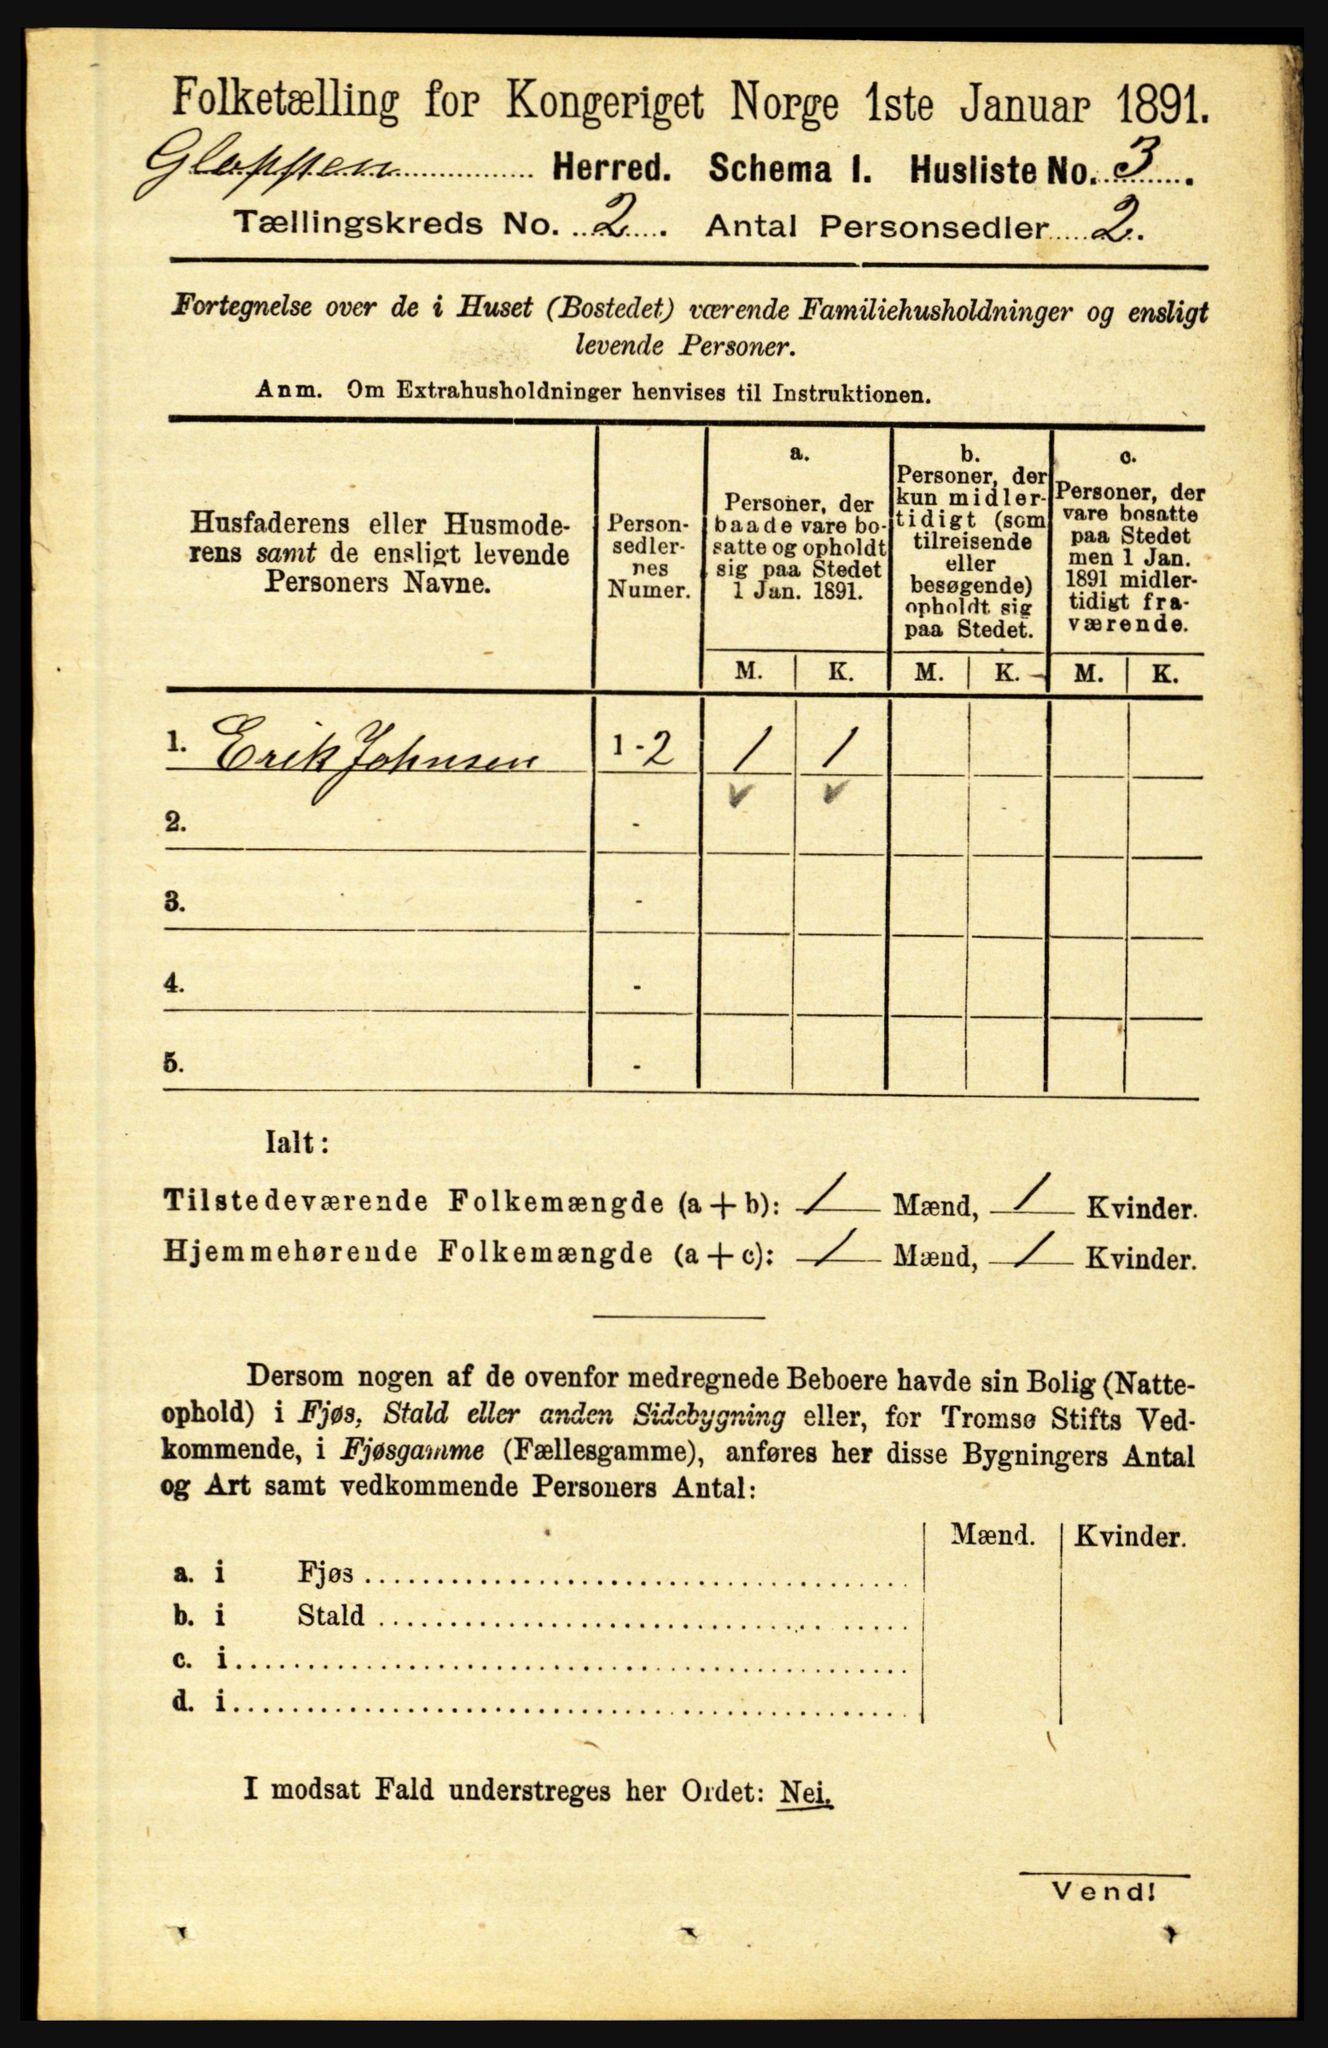 Folketælling for Kongeriget Norge 1ste Januar 1891.
Gloppen Herred. Schema I. Husliste No. 3.
Tællingskreds No. 2. Antal Personsedler 2.
Fortegnelse over de i Huset (Bostedet) værende Familiehusholdninger og ensligt
levende Personer.
Anm. Om Extrahusholdninger henvises til Instruktionen.
Husfaderens eller Husmode-
rens samt de ensligt levende
Personers Navne.
Person-
sedler-
nes
Numer.
a.
Personer, der
baade vare bo-
satte og opholdt
sig paa Stedet
1 Jan. 1891.
b.
Personer, der
kun midler-
tidigt (som
tilreisende
eller
besøgende)
opholdt sig
paa Stedet.
c.
Personer, der
vare bosatte
paa Stedet
men 1 Jan.
1891 midler-
tidigt fra-
værende.
M. K. M. K. M. K.
1. Erik Johnsen 1 - 2 1 1
2. -
3. -
4. -
5. -
Ialt:
Tilstedeværende Folkemængde (a + b): 1 Mænd, 1 Kvinder.
Hjemmehørende Folkemængde (a + c): 1 Mænd, 1 Kvinder.
Dersom nogen af de ovenfor medregnede Beboere havde sin Bolig (Natte-
ophold) i Fjøs, Stald eller anden Sidebygning eller, for Tromsø Stifts Ved-
kommende, i Fjøsgamme (Fællesgamme), anføres her disse Bygningers Antal
og Art samt vedkommende Personers Antal:
Mænd. Kvinder.
a. i Fjøs
b. i Stald
c. i
d. i
I modsat Fald understreges her Ordet: Nei.
Vend!